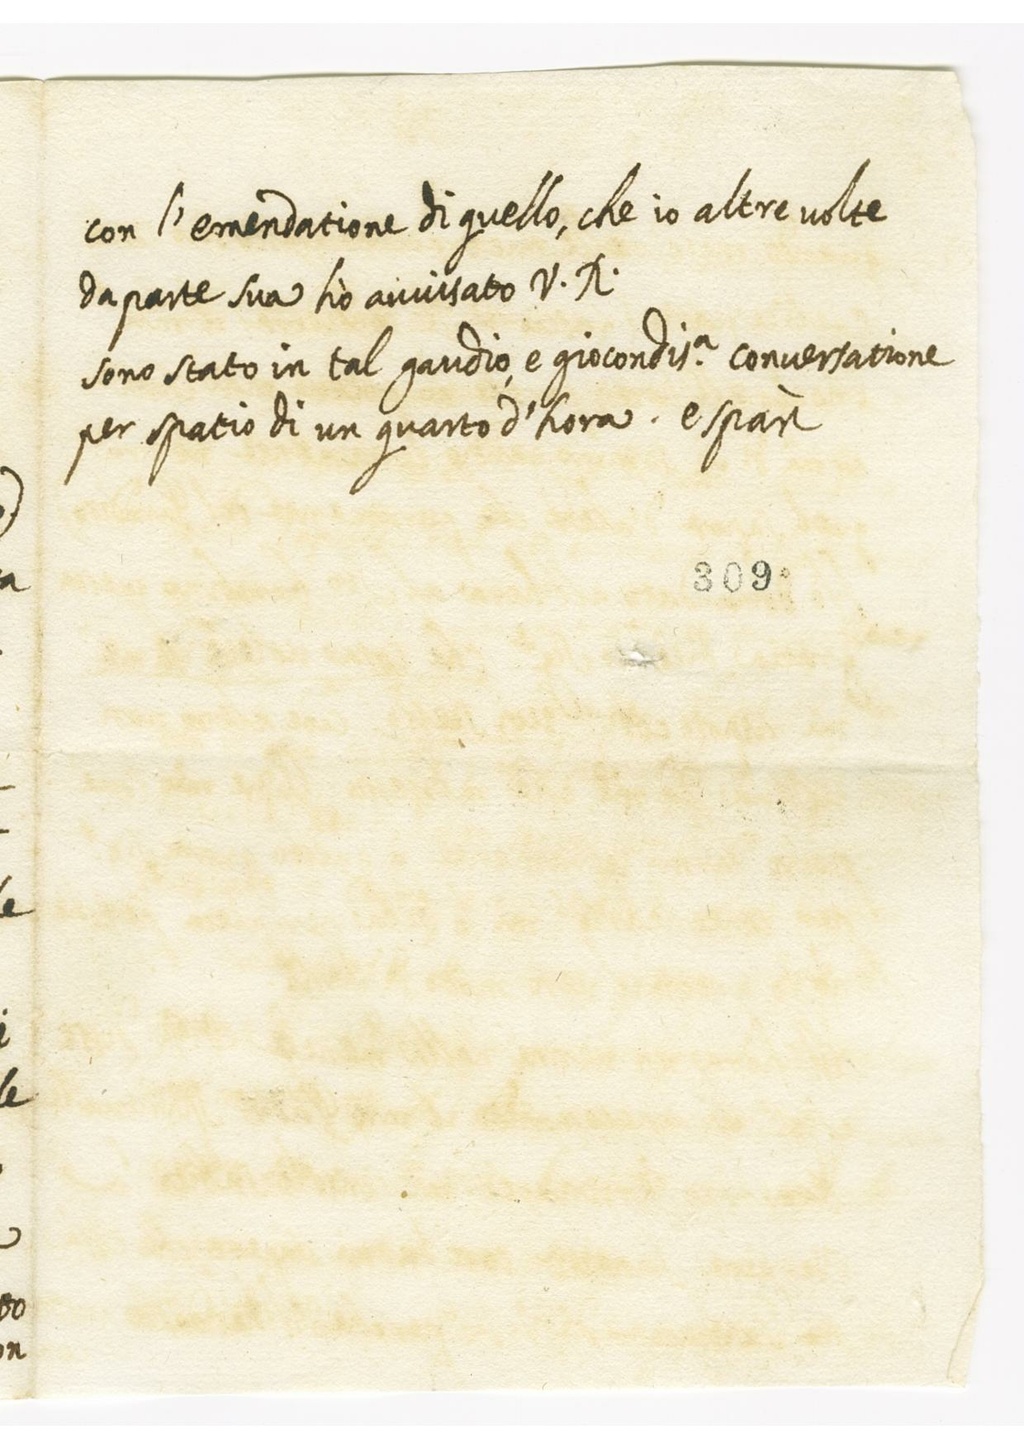 con l'emendatione di quello, che io altre volte
da parte sua hò auuisato V. R.
sono stato in tal gaudio, e giocondis.ª conuersatione
per spatio di un quarto d'hora. e sparì
309
ta
le
i
le
to
on